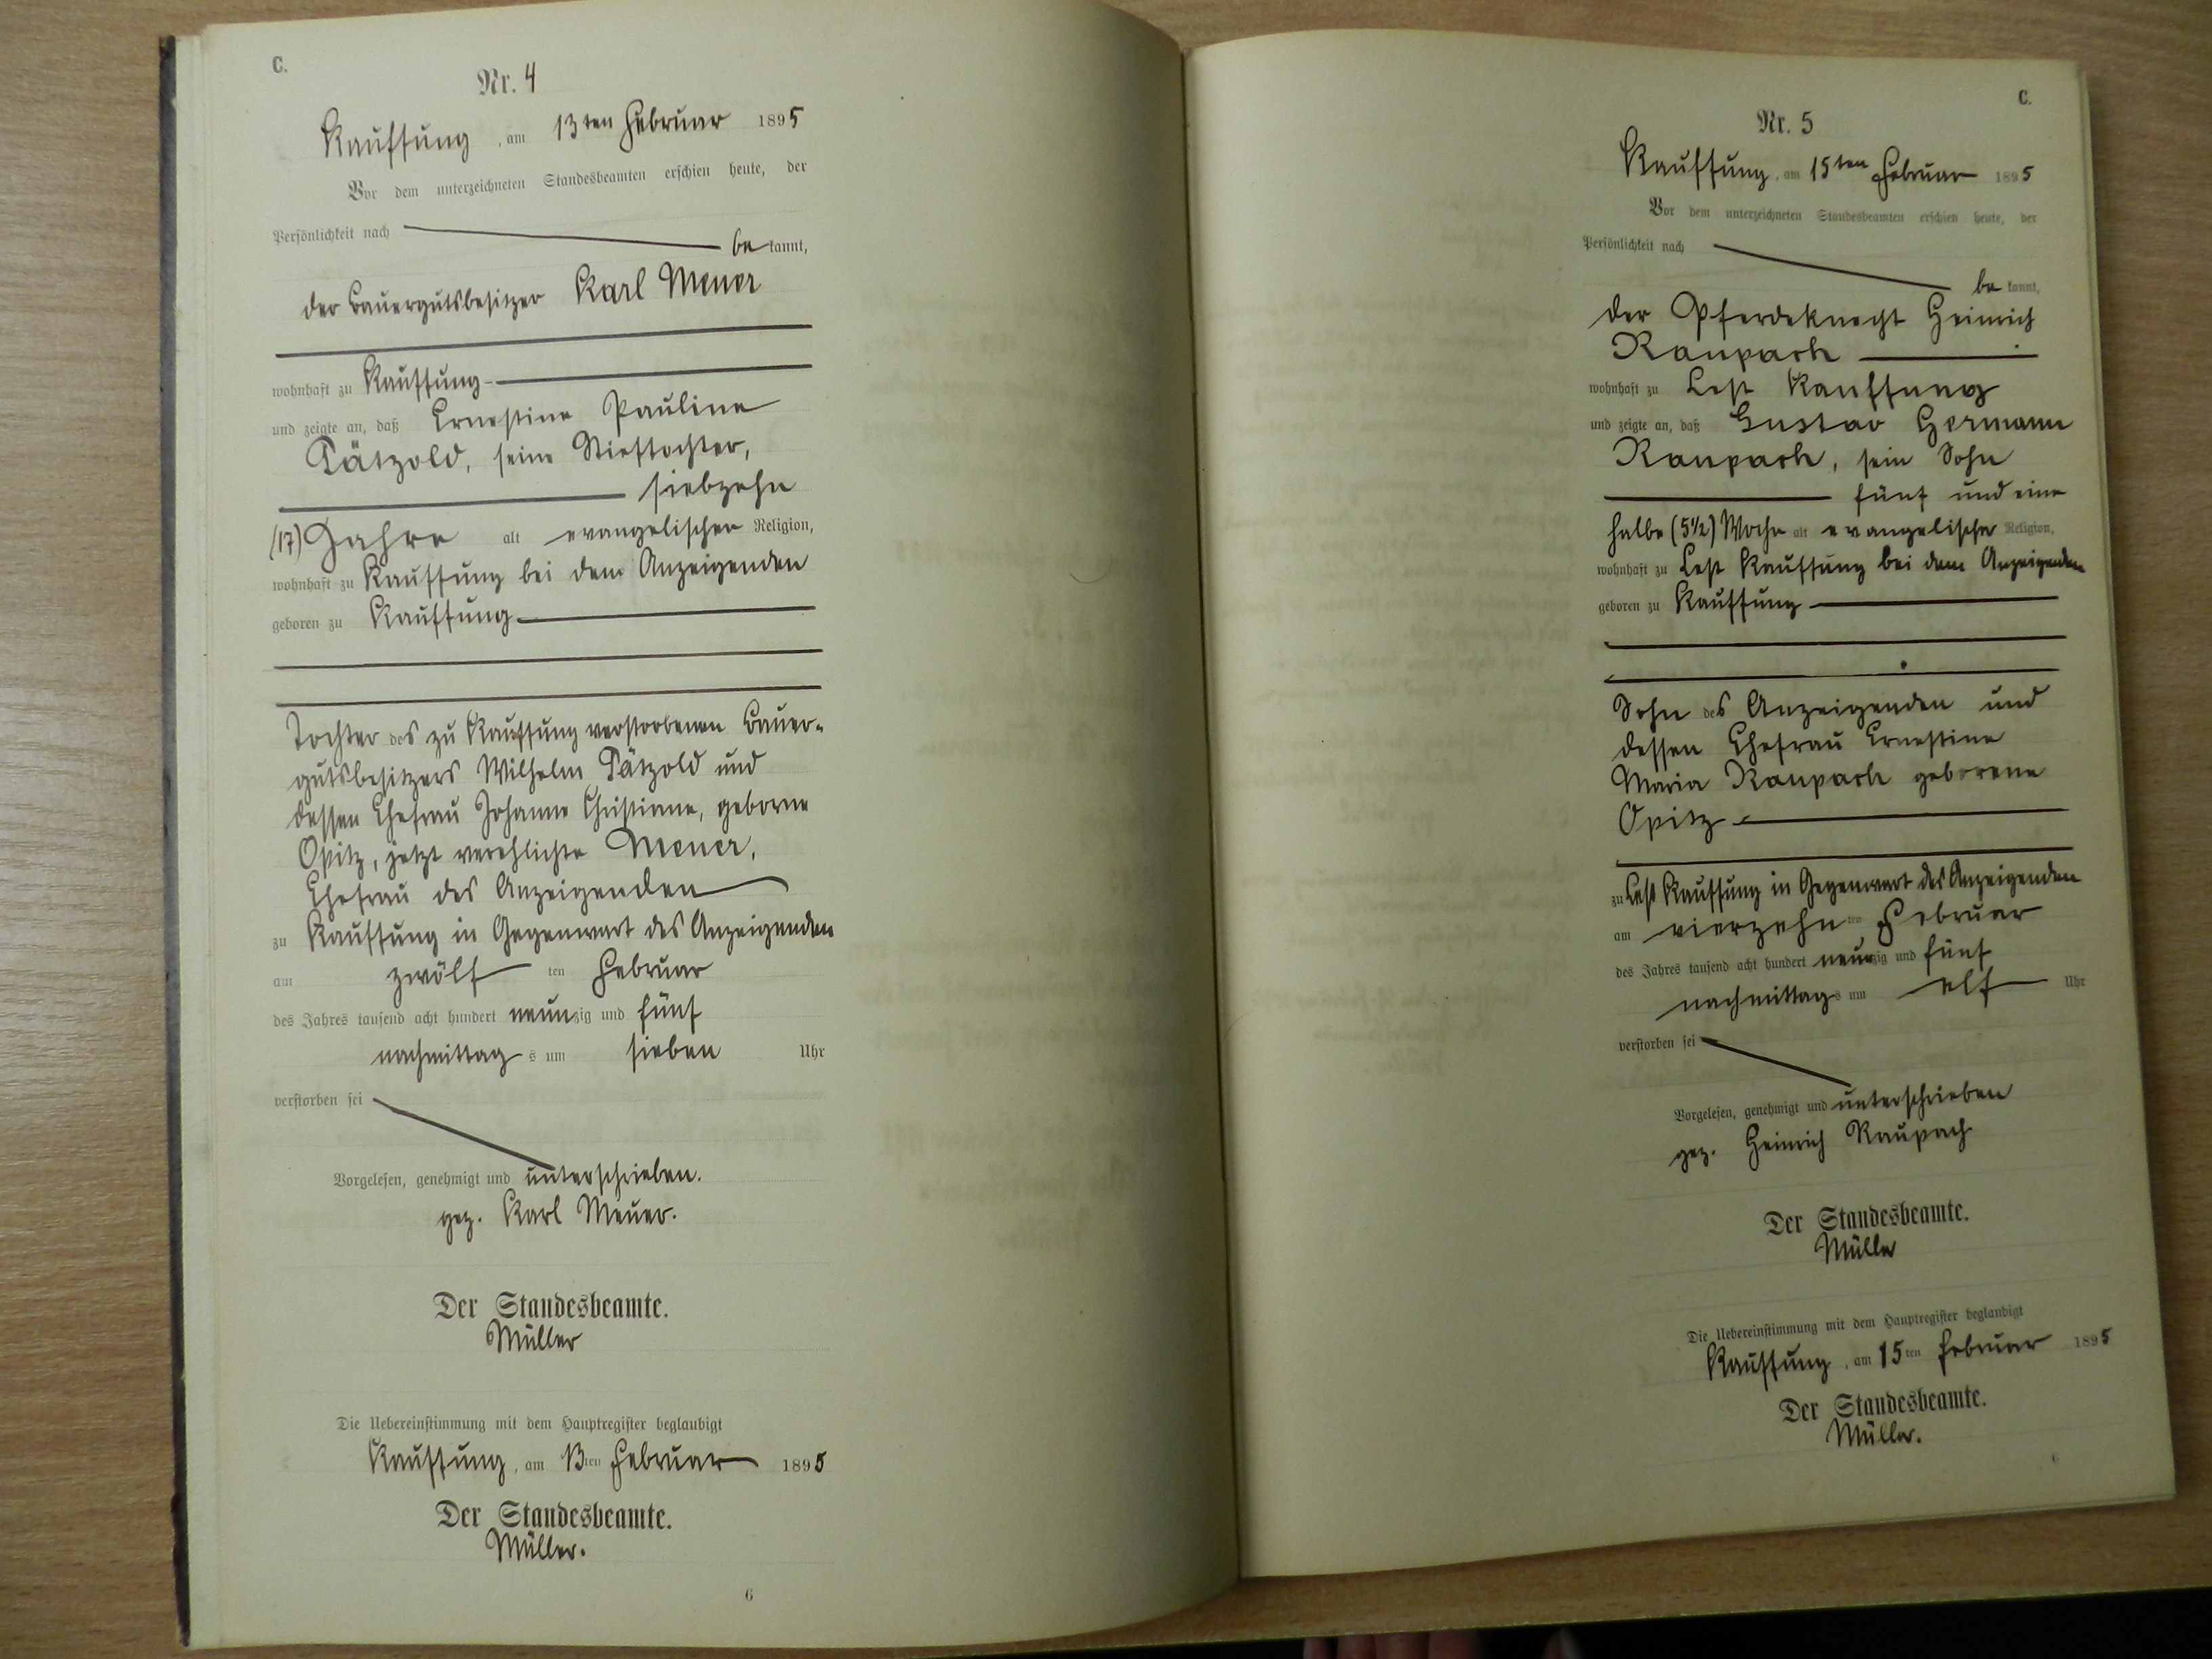 C.
Nr. 4
Kauffung, am 13ten Februar 1895
Vor dem unterzeichneten Standesbeamten erschien heute, der
Persönlichkeit nach
bekannt,
der Bauergutsbesitzer Karl Meuer
wohnhaft zu Kauffung
und zeigte an, daß Ernestine Pauline
Pätzold, seine Stieftochter,
siebzehn
(17) Jahre alt evangelischer Religion,
wohnhaft zu Kauffung bei dem Anzeigenden
geboren zu Kauffung
Tochter des zu Kauffung verstorbenen Bauer-
gutsbesitzers Wilhelm Pätzold und
dessen Ehefrau Johanne Christiane, geborne
Opitz, jetzt verehlichte Meuer,
Ehefrau des Anzeigenden
zu Kauffung in Gegenwart des Anzeigenden
am zwölften Februar
des Jahres tausend acht hundert neunzig und fünf
nachmittags um sieben Uhr
verstorben sei
Vorgelesen, genehmigt und unterschrieben.
gez. Karl Meuer.
Der Standesbeamte.
Müller
Die Uebereinstimmung mit dem Hauptregister beglaubigt
Kauffung, am 13ten Februar 1895
Der Standesbeamte.
Müller.
6
C.
Nr. 5
Kauffung, am 15ten Februar 1895
Vor dem unterzeichneten Standesbeamten erschien heute, der
Persönlichkeit nach
bekannt,
der Pferdeknecht Heinrich
Raupach
wohnhaft zu Lest Kauffung
und zeigte an, daß Gustav Hermann
Raupach, sein Sohn
fünf und eine
halbe (5½) Woche alt evangelische Religion,
wohnhaft zu Lest Kauffung bei dem Anzeigenden
geboren zu Kauffung
Sohn des Anzeigenden und
dessen Ehefrau Ernestine
Maria Raupach geborene
Opitz
zu Lest Kauffung in Gegenwart des Anzeigenden
am vierzehnten Februar
des Jahres tausend acht hundert neunzig und fünf
nachmittags um elf Uhr
verstorben sei
Vorgelesen, genehmigt und unterschrieben
gez. Heinrich Raupach
Der Standesbeamte.
Müller
Die Uebereinstimmung mit dem Hauptregister beglaubigt
Kauffung, am 15ten Februar 1895
Der Standesbeamte.
Müller.